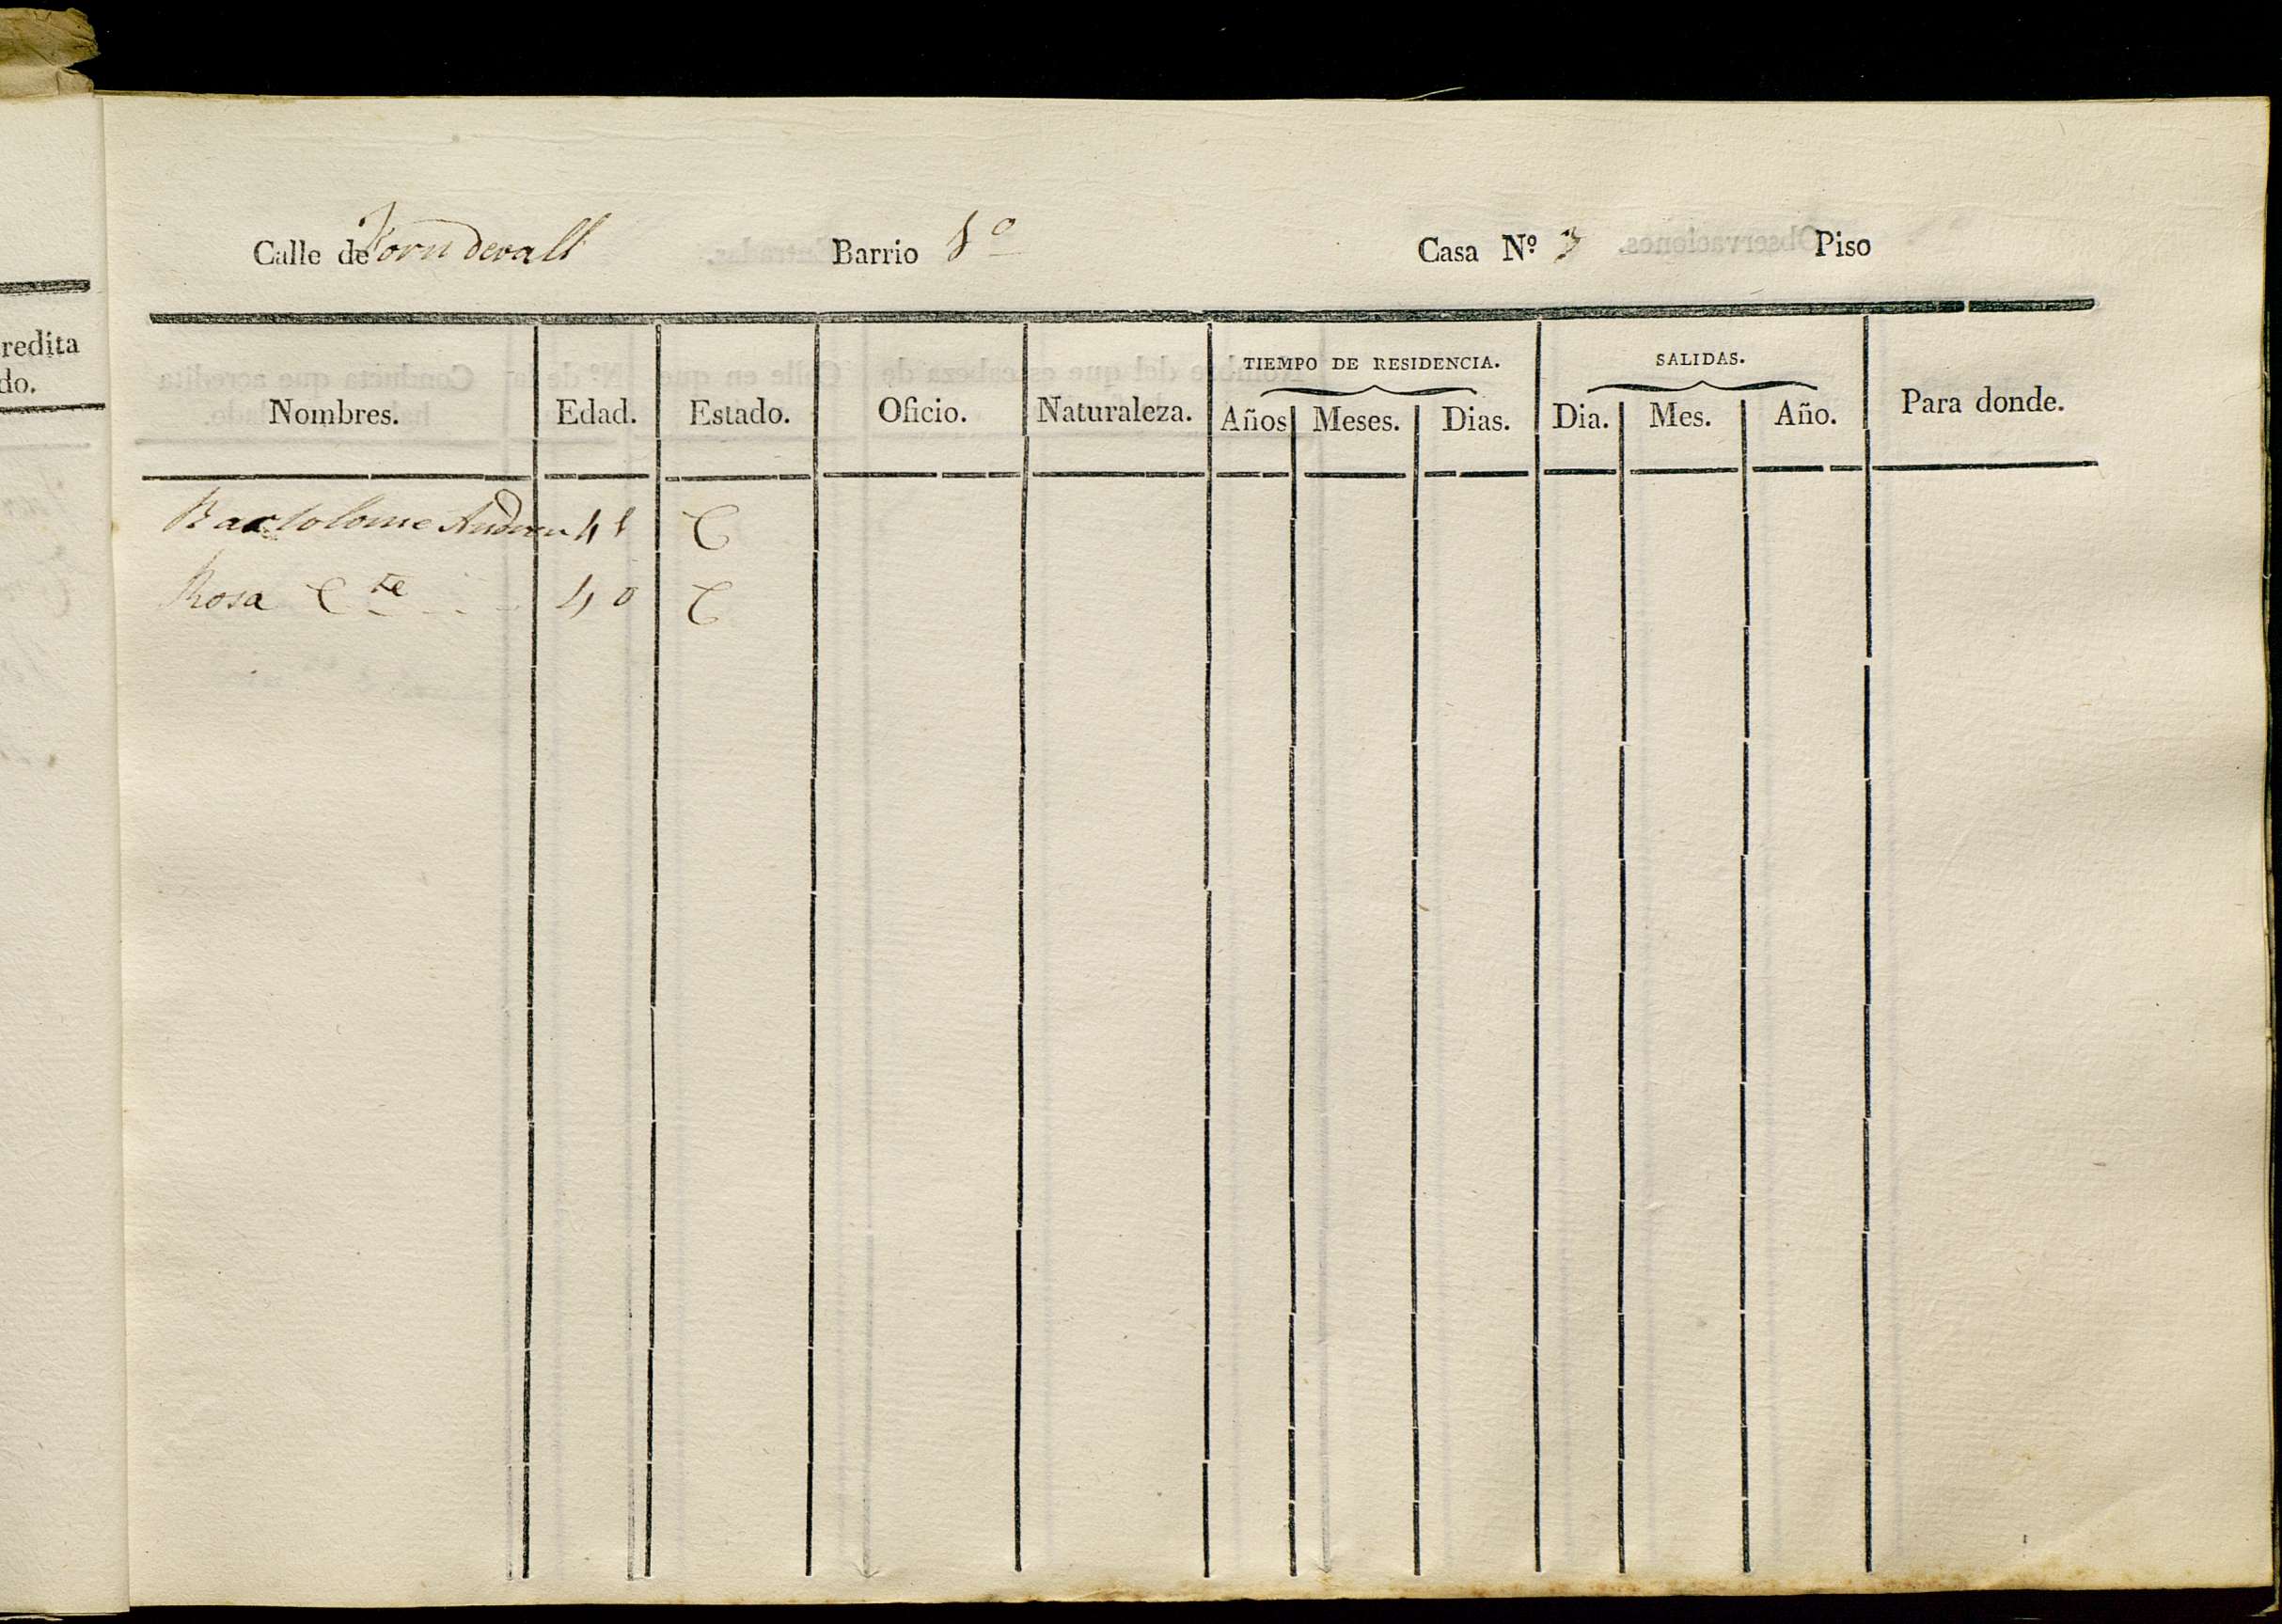 redita
do.
Calle de Forn de vall Barrio 1º Casa Nº 3 Piso
TIEMPO DE RESIDENCIA. SALIDAS.
Nombres. Edad. Estado. Oficio. Naturaleza. Años Meses. Dias. Dia. Mes. Año. Para donde.
Bartolome Andreu 41 C
Rosa Cte 40 C